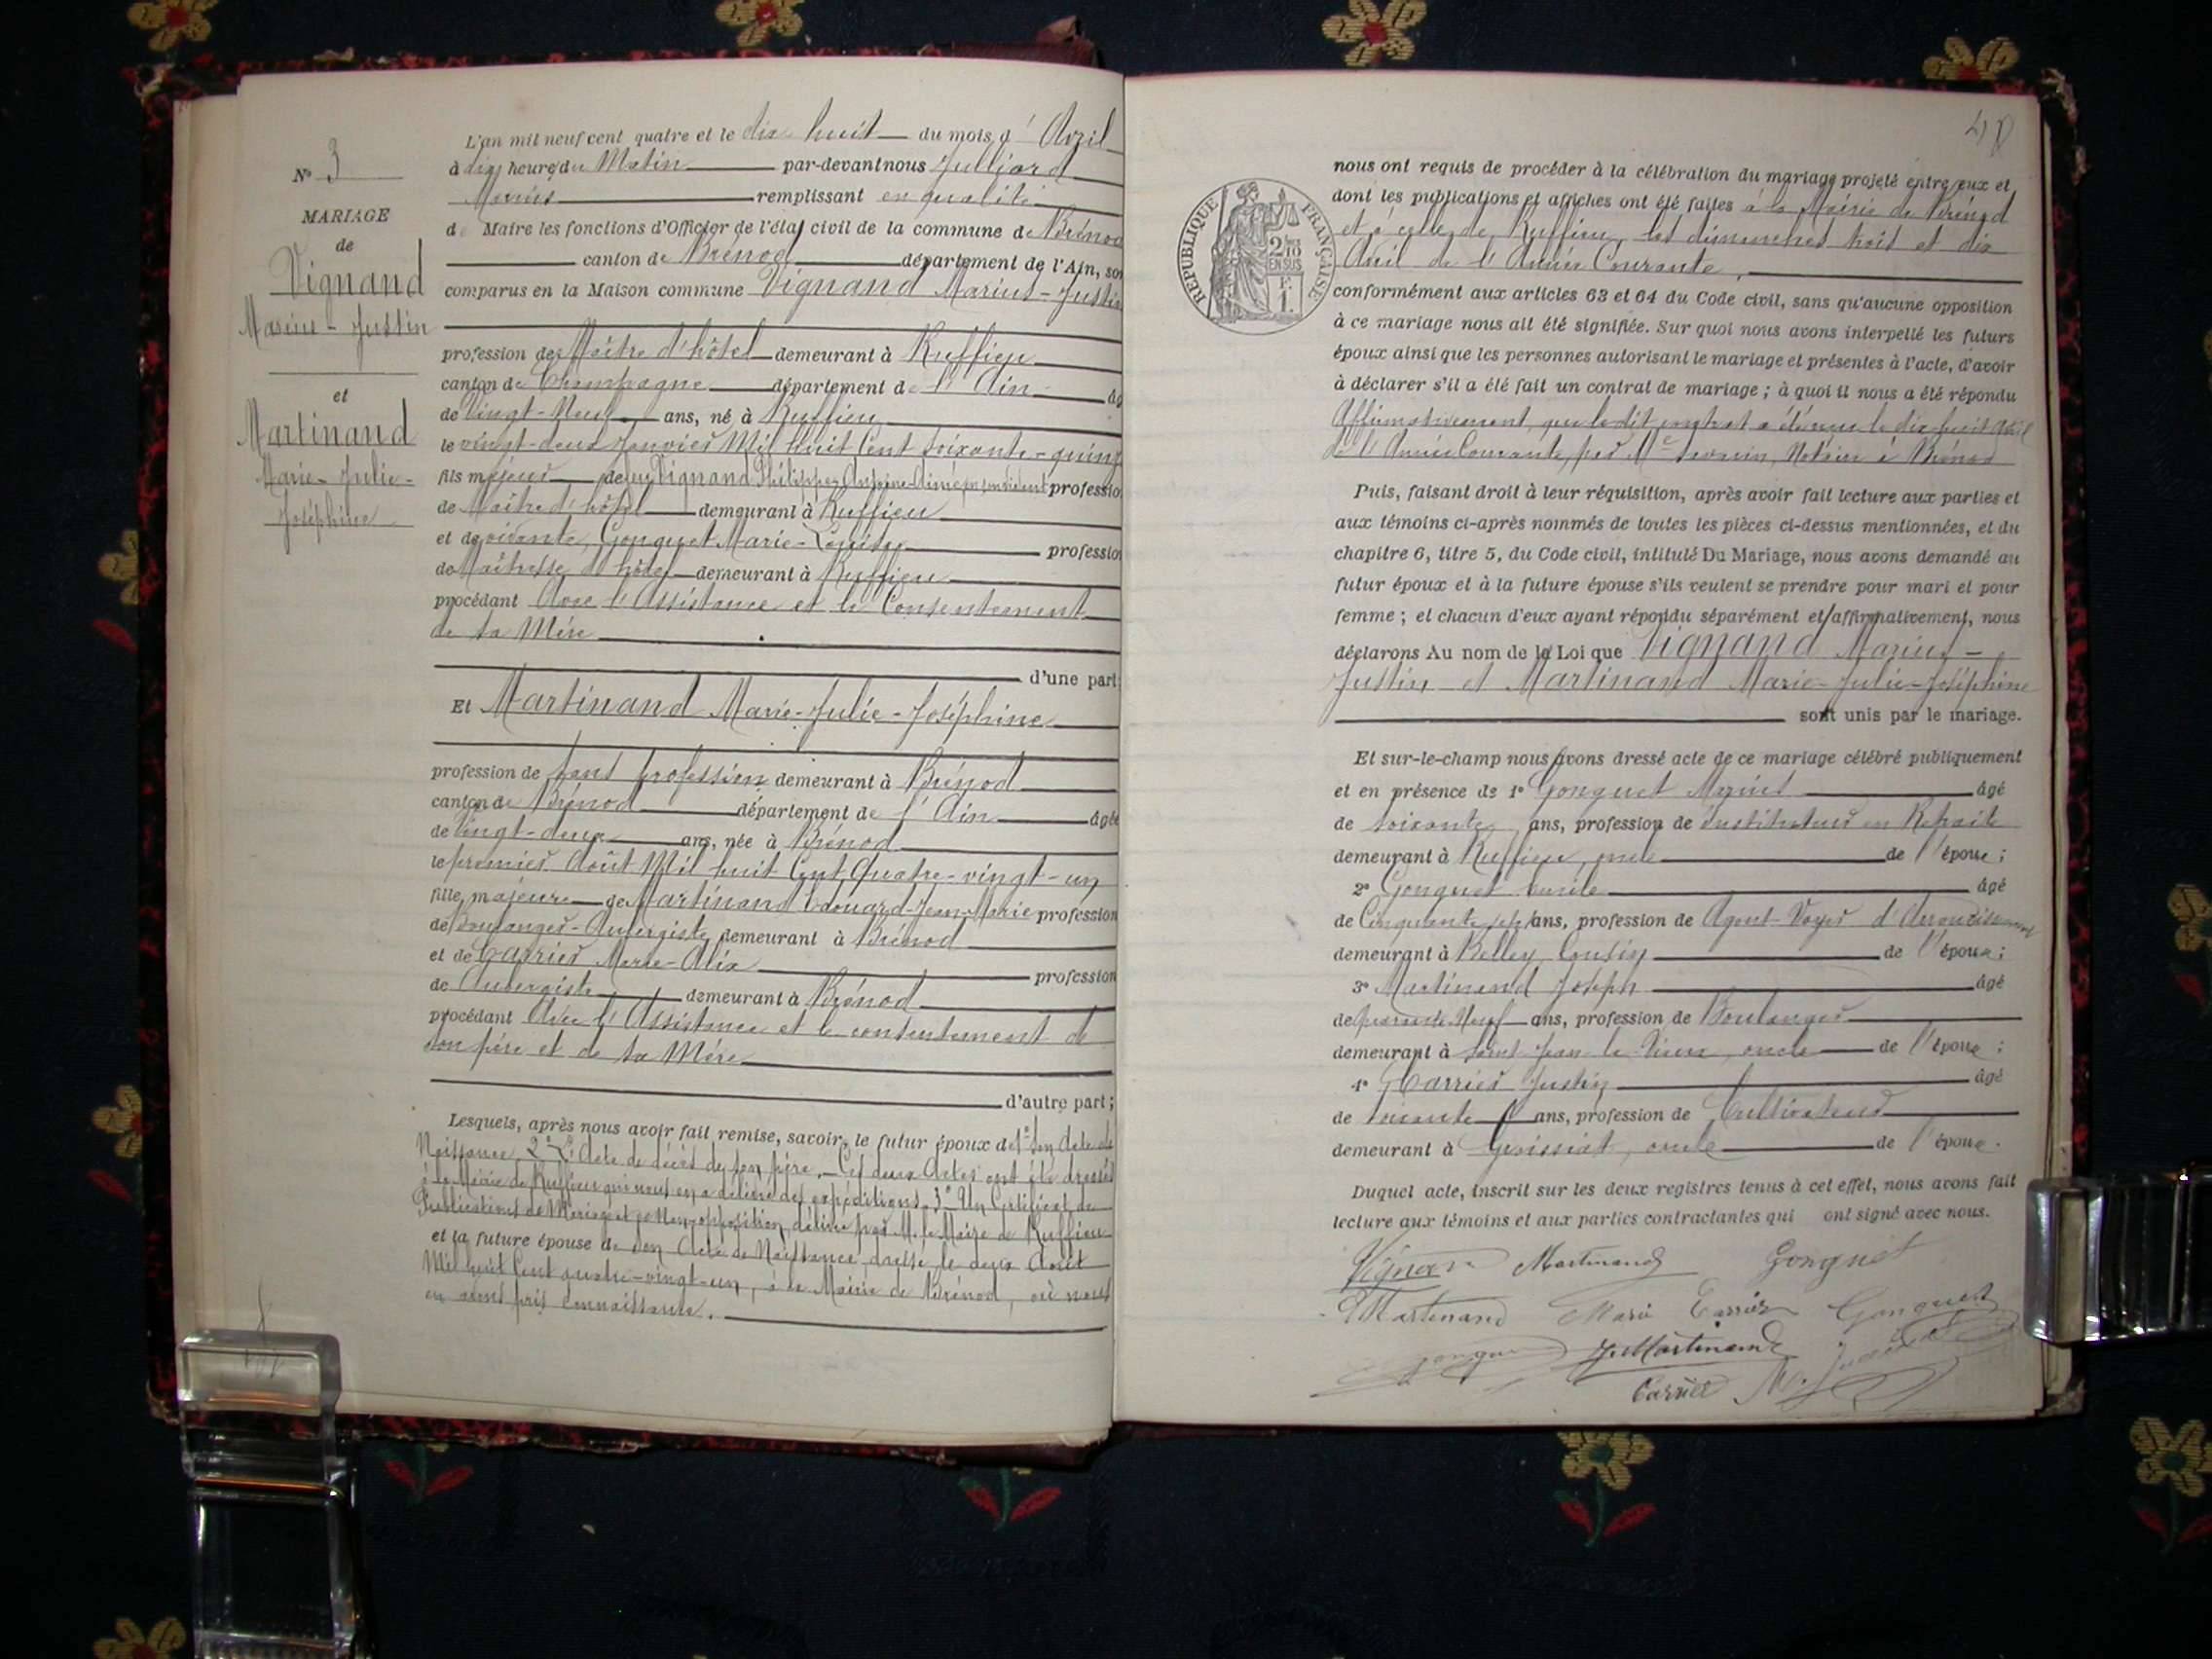 N° 3
MARIAGE
de
Vignand
Marius-Justin
et
Martinand
Marie-Julie-
Joséphine
L'an mil neuf cent quatre et le dix huit du mois d'Avril
à dix heures du Matin par-devant nous Julliard
Marius remplissant en qualité
de Maire les fonctions d'Officier de l'état civil de la commune de Brénod
canton de Brénod département de l'Ain, son
comparus en la Maison commune Vignand Marius-Justin
profession de Maître d'hôtel demeurant à Ruffieu
canton de Champagne département de l'Ain âg
de Vingt-Neuf ans, né à Ruffieu
le vingt-deux Janvier Mil huit Cent soixante-quinz
fils majeur de feu Vignand Philippe Antoine-Aimé en son vivant professio
de Maître d'hôtel demeurant à Ruffieu
et de vivante, Gonguet Marie-Louise professio
de Maîtresse d'hôtel demeurant à Ruffieu
procédant Avec l'Assistance et le Consentement
de sa Mère
d'une part
Et Martinand Marie-Julie-Joséphine
profession de sans profession demeurant à Brénod
canton de Brénod département de l'Ain âgée
de Vingt-deux ans, née à Brénod
le premier Août Mil huit Cent Quatre-vingt-un
fille majeure de Martinand Edouard-Jean-Marie profession
de Boulanger-Aubergiste demeurant à Brénod
et de Carrier Marie-Alix profession
de Aubergiste demeurant à Brénod
procédant Avec l'Assistance et le consentement de
son père et de sa Mère
d'autre part;
Lesquels, après nous avoir fait remise, savoir, le futur époux de 1° Son Acte de
Naissance 2° L'Acte de décès de son père. – Ces deux Actes ont été dressés
à la Mairie de Ruffieu qui nous en a délivré des expéditions. 3° Un Certificat de
Publications de Mariage et de Non opposition délivré par M. le Maire de Ruffieu
et la future épouse de son Acte de Naissance dressé le deux Août
Mil huit Cent quatre-vingt-un, à la Mairie de Brénod, où nous
en avons pris connaissance.
48
REPUBLIQUE FRANÇAISE
2/10
EN SUS
nous ont requis de procéder à la célébration du mariage projeté entre eux et
dont les publications et affiches ont été faites à la Mairie de Brénod
et à celle de Ruffieu, les dimanches trois et dix
Avril de l'Année Courante,
conformément aux articles 63 et 64 du Code civil, sans qu'aucune opposition
à ce mariage nous ait été signifiée. Sur quoi nous avons interpellé les futurs
époux ainsi que les personnes autorisant le mariage et présentes à l'acte, d'avoir
à déclarer s'il a été fait un contrat de mariage; à quoi il nous a été répondu
Affirmativement, que le dit contrat a été reçu le dix huit Avril
de l'Année Courante, par Me Notaire à Brénod
Puis, faisant droit à leur réquisition, après avoir fait lecture aux parties et
aux témoins ci-après nommés de toutes les pièces ci-dessus mentionnées, et du
chapitre 6, titre 5, du Code civil, intitulé Du Mariage, nous avons demandé au
futur époux et à la future épouse s'ils veulent se prendre pour mari et pour
femme; et chacun d'eux ayant répondu séparément et affirmativement, nous
déclarons Au nom de la Loi que Vignand Marius-
Justin et Martinand Marie-Julie-Joséphine
sont unis par le mariage.
Et sur-le-champ nous avons dressé acte de ce mariage célébré publiquement
et en présence de 1° Gonguet Marius âgé
de soixante ans, profession de Instituteur en Retraite
demeurant à Ruffieu, oncle de l'époux;
2° Gonguet âgé
de Cinquante sept ans, profession de Agent-Voyer d'Arrondissement
demeurant à Belley, Cousin de l'époux;
3° Martinand Joseph âgé
de quarante-Neuf ans, profession de Boulanger
demeurant à Saint Jean le Vieux, oncle de l'épouse;
4° Carrier Justin âgé
de soixante ans, profession de Cultivateur
demeurant à Geissiat, oncle de l'épouse.
Duquel acte, inscrit sur les deux registres tenus à cet effet, nous avons fait
lecture aux témoins et aux parties contractantes qui ont signé avec nous.
Vignand Martinand Gonguet
E Martinand Marie Carrier Gonguet
Gonguet J. Martinand
Carrier M. Julliard